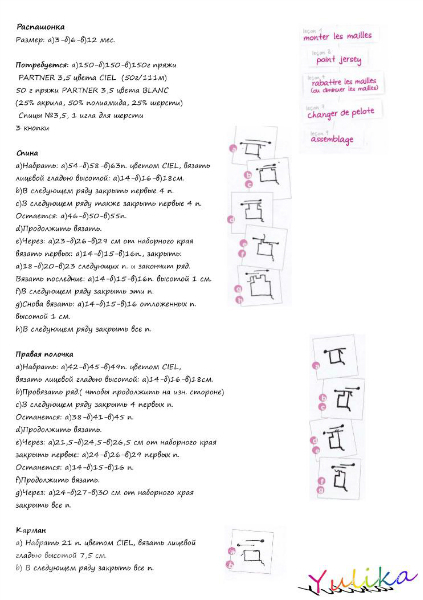 Распашонка
Размер: а)3-б)6-в)12 мес.
Потребуется: а)150-б)150-в)150г пряжи
PARTNER 3,5 цвета CIEL (50г/111м)
50 г пряжи PARTNER 3,5 цвета BLANC
(25% акрила, 50% полиамида, 25% шерсти)
Спицы №3,5, 1 игла для шерсти
3 кнопки
Спина
а)Набрать: а)54-б)58-в)63п. цветом CIEL, вязать
лицевой гладью высотой: а)14-б)16-в)18см.
b)В следующем ряду закрыть первые 4 п.
c)В следующем ряду также закрыть первые 4 п.
Остается: а)46-б)50-в)55п.
d)Продолжить вязать.
e)Через: а)23-б)26-в)29 см от наборного края
вязать первых: а)14-б)15-в)16п., закрыть:
а)18-б)20-в)23 следующих п. и закончит ряд.
Вязать последние: а)14-б)15-в)16п. высотой 1 см.
f)В следующем ряду закрыть эти п.
g)Снова вязать: а)14-б)15-в)16 отложенных п.
высотой 1 см.
h)В следующем ряду закрыть все п.
Правая полочка
а)Набрать: а)42-б)45-в)49п. цветом CIEL,
вязать лицевой гладью высотой: а)14-б)16-в)18см.
b)Провязать ряд.( чтобы продолжить на изн. стороне)
c)В следующем ряду закрыть 4 первых п.
Останется: а)38-б)41-в)45 п.
d)Продолжить вязать.
e)Через: а)21,5-б)24,5-в)26,5 см от наборного края
закрыть первые: а)24-б)26-в)29 первых п.
Останется: а)14-б)15-в)16 п.
f)Продолжить вязать.
g)Через: а)24-б)27-в)30 см от наборного края
закрыть все п.
Карман
а) Набрать 21 п. цветом CIEL, вязать лицевой
гладью высотой 7,5 см.
b) В следующем ряду закрыть все п.
monter les mailles
point jersey
rabattre les mailles
(ou diminuer les mailles)
changer de pelote
assemblage
Yulika